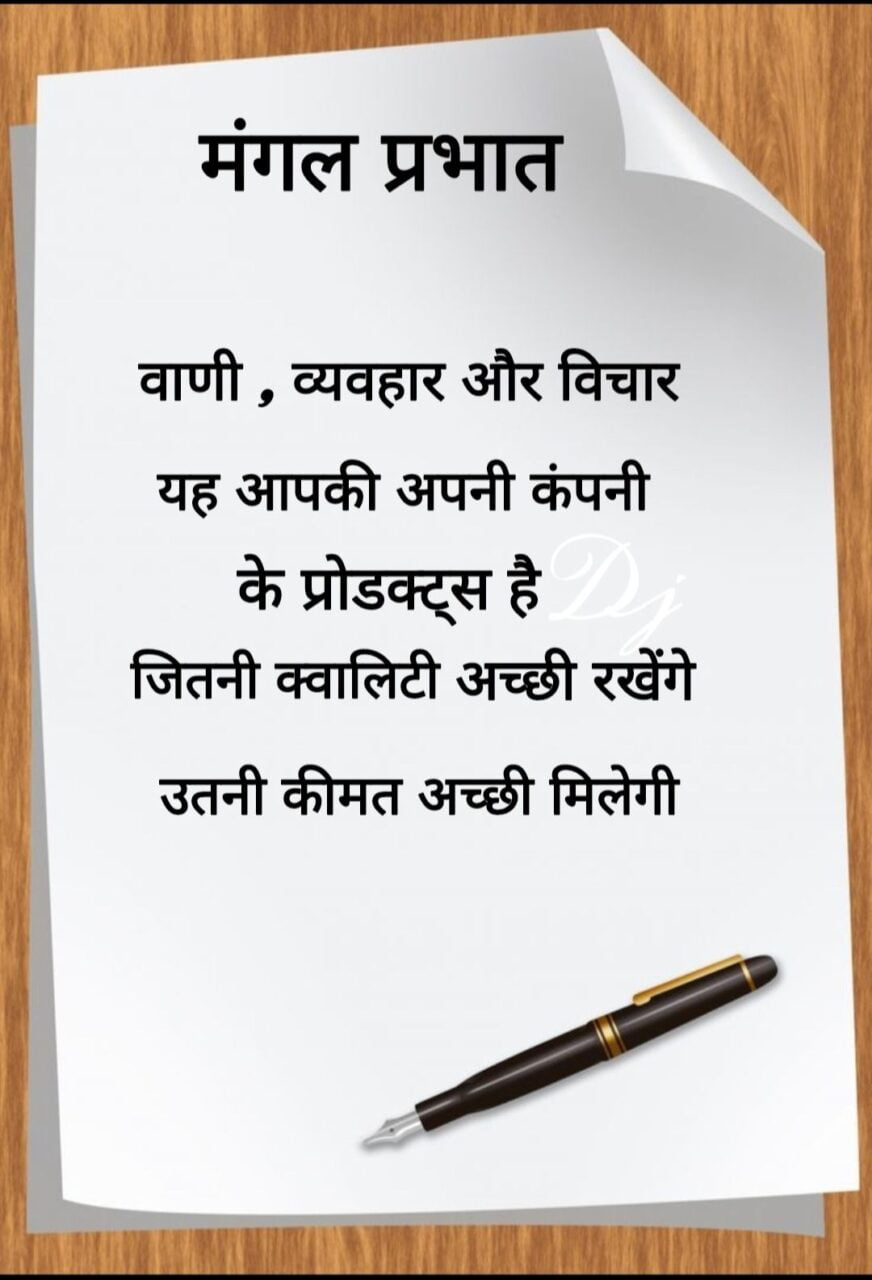 मंगल प्रभात
वाणी , व्यवहार और विचार
यह आपकी अपनी कंपनी
के प्रोडक्ट्स है
Dj
जितनी क्वालिटी अच्छी रखेंगे
उतनी कीमत अच्छी मिलेगी